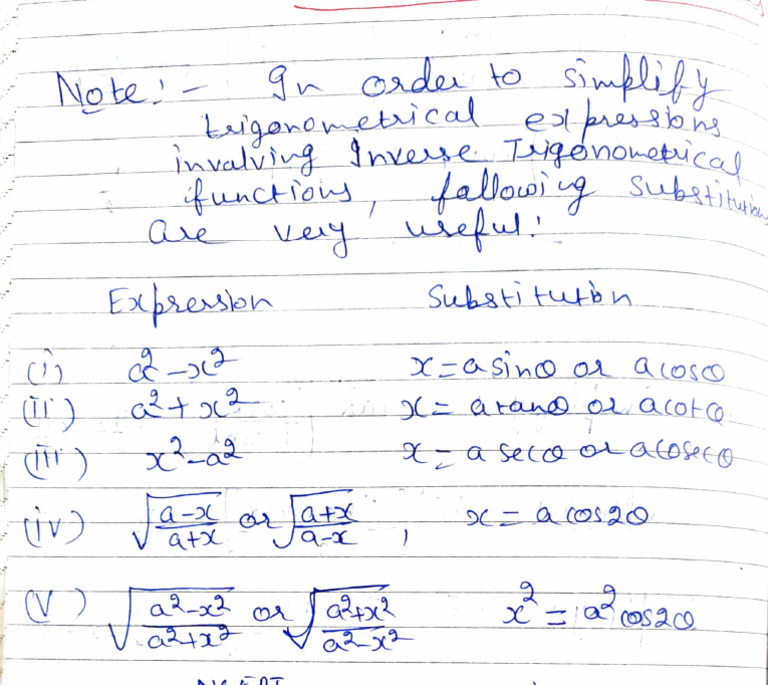 Note:- In order to simplify
trigonometrical expressions
involving Inverse Trigonometrical
functions, following substitution
are very useful:
Expression Substitution
(i) a²-x² x=a sinθ or a cosθ
(ii) a²+x² x= a tanθ or a cotθ
(iii) x²-a² x= a secθ or a cosecθ
(iv) √((a-x)/(a+x)) or √((a+x)/(a-x)) , x= a cos2θ
(v) √((a²-x²)/(a²+x²)) or √((a²+x²)/(a²-x²)) x² = a² cos2θ